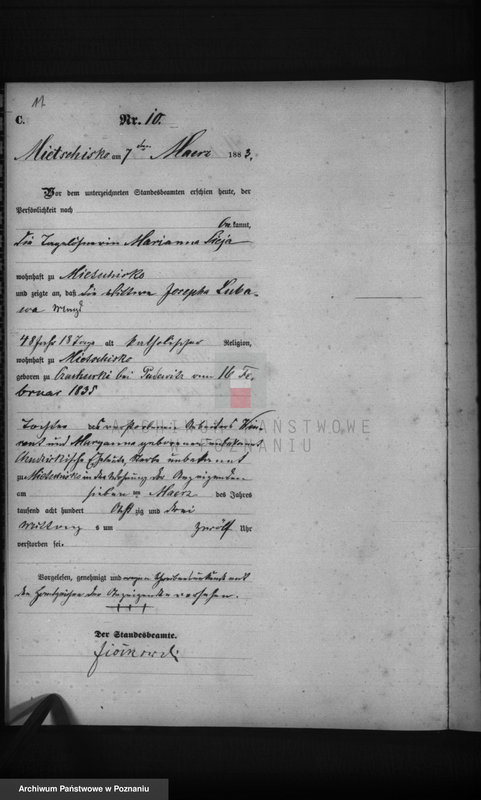 11
C.
Nr. 10.
Mietschisko am 7ten Maerz 1883.
Vor dem unterzeichneten Standesbeamten erschien heute, der
Persönlichkeit nach
bekannt,
die Tagelöhnerin Marianna
wohnhaft zu Mietschisko
und zeigte an, daß die Wittwe Josepha Luka-
48 Jahr 18 Tage alt katholischer Religion,
wohnhaft zu Mietschisko
geboren zu bei Pudewitz am 16 Fe-
bruar 1835
Tochter des verstorbenen Arbeiters
und Maryanna geborenen unbekannt
Eheleute unbekannt
zu Mietschisko in der Wohnung der Anzeigenden
am sieben ten Maerz des Jahres
tausend acht hundert Acht zig und drei
Mittags um zwölf Uhr
verstorben sei.
Vorgelesen, genehmigt und wegen Schreibensunkunde mit
den Handzeichen der Anzeigenden versehen.
+++
Der Standesbeamte.
ARCHIWUM PAŃSTWOWE
W POZNANIU
Archiwum Państwowe w Poznaniu